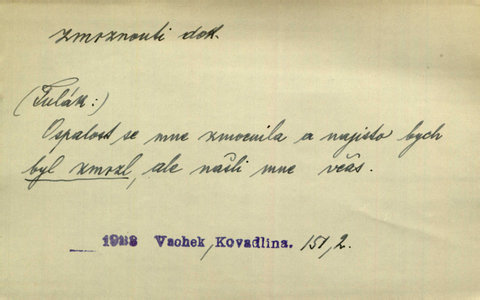 zmrznouti dok.
(Tulák:)
Ospalost se mne zmocnila a najisto bych
byl zmrzl, ale našli mne včas.
1933 Vachek, Kovadlina. 151, 2.